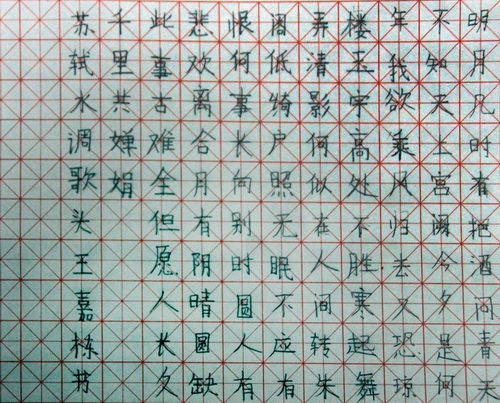 明月几时有把酒问青天
不知天上宫阙今夕是何
年我欲乘风归去又恐琼
楼玉宇高处不胜寒起舞
弄清影何似在人间转朱
阁低绮户照无眠不应有
恨何事长向别时圆人有
悲欢离合月有阴晴圆缺
此事古难全但愿人长久
千里共婵娟
苏轼水调歌头王嘉栋书